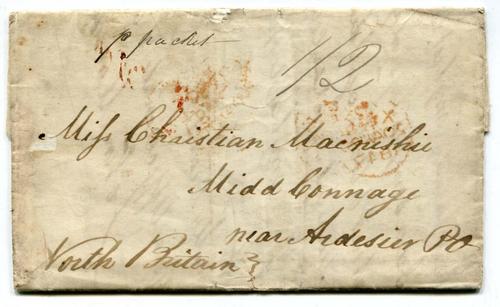 p packet
1/2
Miss Christian Macnishie
Midd Connage
near Ardesier PO
North Britain